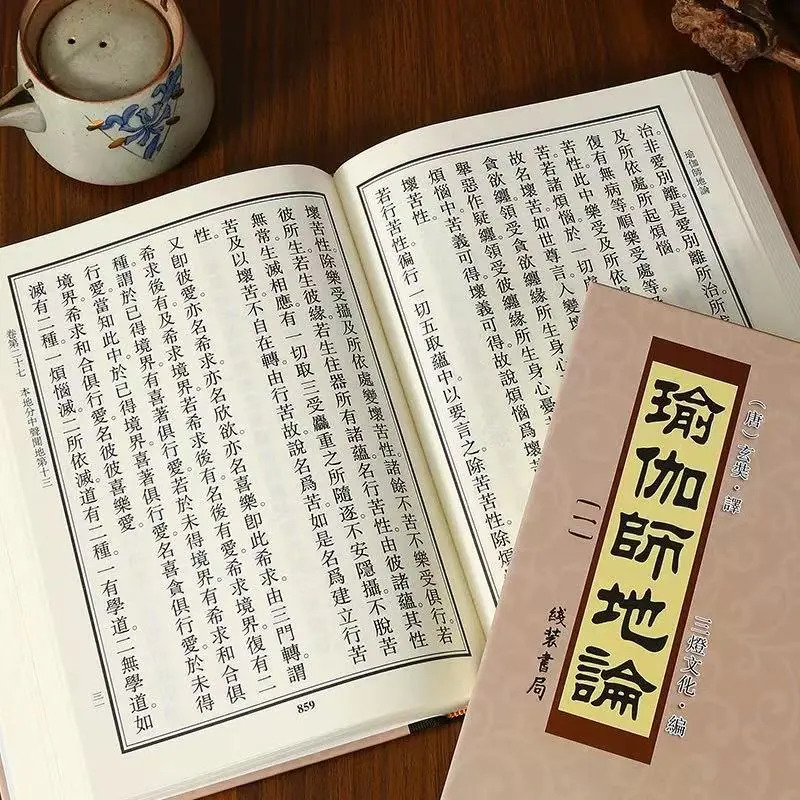 瑜伽師地論
治非愛別離是愛別離所治所
及所依處所起煩惱。
復有無病等順樂受處等
苦性。此中樂受及所依
苦。若諸煩惱於一切
故名壞苦。如世尊言人變
貪欲纏領受貪欲纏緣所生身心憂
舉惡作疑纏領受彼纏緣所生身心
煩惱中苦義可得壞義可得故說煩惱爲
壞苦性。
若行苦性徧行一切五取蘊中以要言之除苦苦性除
壞苦性。除樂受攝及所依處變壞苦性。諸餘不苦不樂受俱行。若
彼所生若生彼緣若生住器所有諸蘊名行苦性。由彼諸蘊其性
無常。生滅相應。有一切取三受麤重之所隨逐。不安隱攝。不脫苦
苦及以壞苦。不自在轉。由行苦故說名爲苦。如是名爲建立行苦
性。
又即彼愛亦名希求。亦名欣欲。亦名喜樂。即此希求由三門轉。謂
希求後有及希求境界。若希求後有名後有愛。希求境界復有二
種。謂於已得境界有喜著俱行愛。若於未得境界有希求和合俱
行愛。當知此中於已得境界喜著俱行愛名喜貪俱行愛。於未得
境界希求和合俱行愛名彼彼喜樂愛。
滅有二種。一煩惱滅。二所依滅。道有二種。一有學道。二無學道。如
卷第二十七　本地分中聲聞地第十三
三一
859
（唐）玄奘·譯
三燈文化·編
瑜伽師地論
（一）
綫装書局